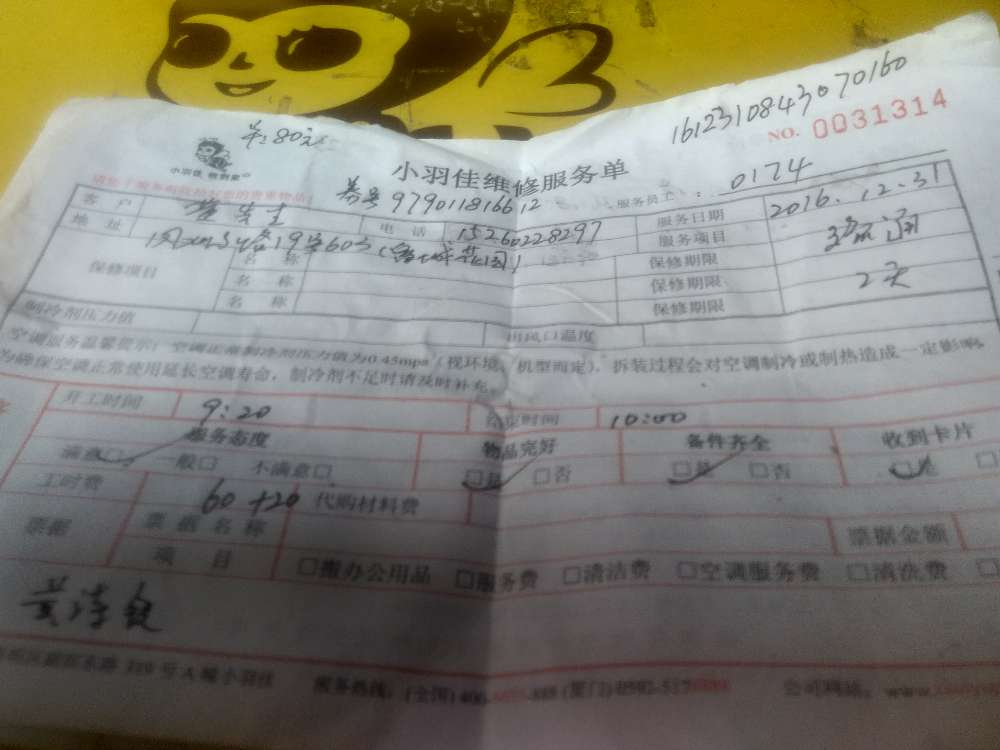 单:80元
1612310843070160
NO. 0031314
小羽佳
小羽佳维修服务单
979011816612
服务员工: 0174
客 户 电 话 15260228297 服务日期 2016.12.31
地 址 19号603 服务项目
保修项目 名 称 保修期限 2天
名 称 保修期限
名 称 保修期限
制冷剂压力值 出风口温度
空调服务温馨提示:空调正常制冷剂压力值为0.45mpa(视环境、机型而定),拆装过程会对空调制冷或制热造成一定影响,
为确保空调正常使用延长空调寿命,制冷剂不足时请及时补充。
开工时间 9:20 结束时间 10:00
服务态度 物品完好 备件齐全 收到卡片
满意□ 一般□ 不满意□ □是 □否 □是 □否 □是 □
工时费 60+20 代购材料费
票据 票据名称 票据金额
项 目 □搬办公用品 □服务费 □清洁费 □空调服务费 □清洗费 □
319号A幢小羽佳 服务热线:(全国)400 (厦门)0592-517 公司网站:www.